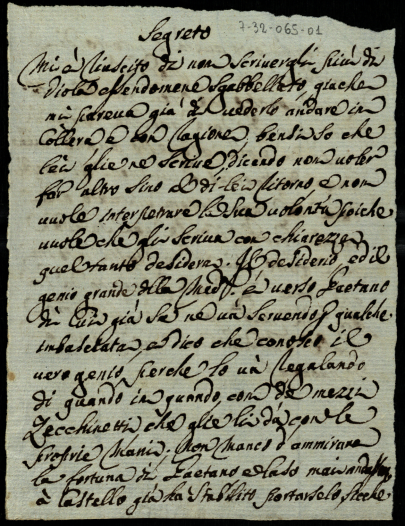 7-32-065-01
Segreto
Mi è riuscito di non scrivergli più di
essendomene sgabbellato, giache
mi pareva già di vederlo andare in
Collera e con ragione, bensì so che
lei glie ne scrive, dicendo non voler
far altro sino al di lei ritorno, e non
vuole interpretrare la sua volontà, poiche
vuole che gli scriva con chiarezza
quel tanto desidera. Il desiderio ed il
genio grande della è verso Gaetano
di lui già se ne và servendo p qualche
imbasciata, e dico che conosco il
vero genio, perche lo và regalando
di quando in quando, con de mezzi
Zecchinetti, che glie li dà con le
proprie Mani. Non manco d'ammirare
la fortuna di Gaetano e
à Castello già ha stabilito portarselo,